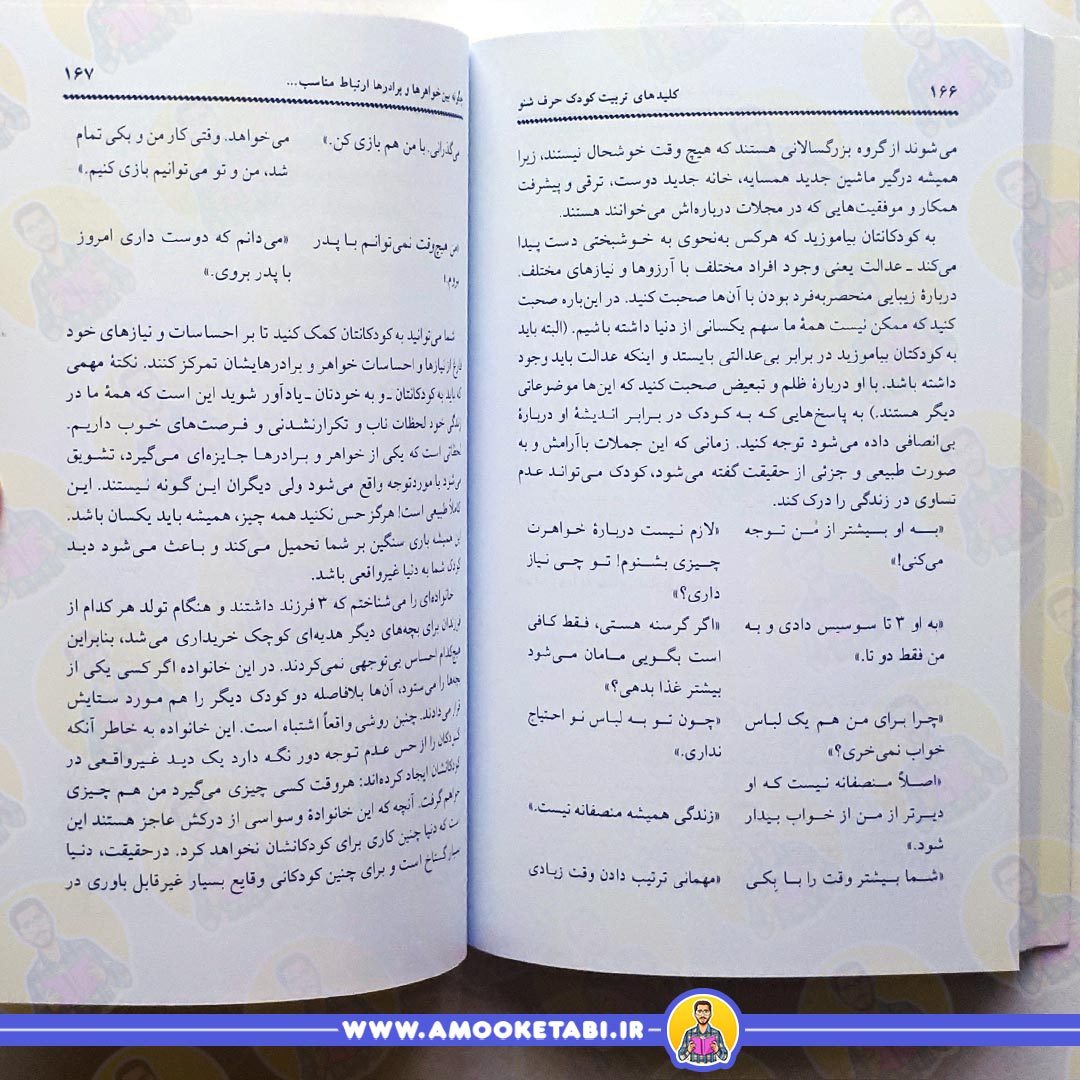 ۱۶۶
کلیدهای تربیت کودک حرف شنو
می‌شوند از گروه بزرگسالانی هستند که هیچ وقت خوشحال نیستند، زیرا
همیشه درگیر ماشین جدید همسایه، خانه جدید دوست، ترقی و پیشرفت
همکار و موفقیت‌هایی که در مجلات درباره‌اش می‌خوانند هستند.
به کودکانتان بیاموزید که هرکس به‌نحوی به خوشبختی دست پیدا
می‌کند ـ عدالت یعنی وجود افراد مختلف با آرزوها و نیازهای مختلف.
دربارهٔ زیبایی منحصربه‌فرد بودن با آن‌ها صحبت کنید. در این‌باره صحبت
کنید که ممکن نیست همهٔ ما سهم یکسانی از دنیا داشته باشیم. (البته باید
به کودکتان بیاموزید در برابر بی‌عدالتی بایستد و اینکه عدالت باید وجود
داشته باشد. با او دربارهٔ ظلم و تبعیض صحبت کنید که این‌ها موضوعاتی
دیگر هستند.) به پاسخ‌هایی که به کودک در برابر اندیشهٔ او دربارهٔ
بی‌انصافی داده می‌شود توجه کنید. زمانی که این جملات باآرامش و به
صورت طبیعی و جزئی از حقیقت گفته می‌شود، کودک می‌تواند عدم
تساوی در زندگی را درک کند.
«به او بیشتر از مُن توجه
می‌کنی!»
«لازم نیست دربارهٔ خواهرت
چیزی بشنوم! تو چی نیاز
داری؟»
«به او ۳ تا سوسیس دادی و به
من فقط دو تا.»
«اگر گرسنه هستی، فقط کافی
است بگویی مامان می‌شود
بیشتر غذا بدهی؟»
«چرا برای من هم یک لباس
خواب نمی‌خری؟»
«چون تو به لباس نو احتیاج
نداری.»
«اصلاً منصفانه نیست که او
دیرتر از من از خواب بیدار
شود.»
«زندگی همیشه منصفانه نیست.»
«شما بیشتر وقت را با بکی
«مهمانی ترتیب دادن وقت زیادی
بین خواهرها و برادرها ارتباط مناسب...
۱۶۷
می‌گذرانی. با من هم بازی کن.»
می‌خواهد. وقتی کار من و بکی تمام
شد، من و تو می‌توانیم بازی کنیم.»
«من هیچ‌وقت نمی‌توانم با پدر
بروم.»
«می‌دانم که دوست داری امروز
با پدر بروی.»
شما می‌توانید به کودکانتان کمک کنید تا بر احساسات و نیازهای خود
فارغ از نیازها و احساسات خواهر و برادرهایشان تمرکز کنند. نکتهٔ مهمی
که باید به کودکانتان ـ و به خودتان ـ یادآور شوید این است که همهٔ ما در
زندگی خود لحظات ناب و تکرارنشدنی و فرصت‌های خوب داریم.
لحظاتی است که یکی از خواهر و برادرها جایزه‌ای می‌گیرد، تشویق
می‌شود یا موردتوجه واقع می‌شود ولی دیگران این گونه نیستند. این
کاملاً طبیعی است! هرگز حس نکنید همه چیز، همیشه باید یکسان باشد.
این همیشه باری سنگین بر شما تحمیل می‌کند و باعث می‌شود دید
کودک شما به دنیا غیرواقعی باشد.
خانواده‌ای را می‌شناختم که ۳ فرزند داشتند و هنگام تولد هر کدام از
فرزندان برای بچه‌های دیگر هدیه‌ای کوچک خریداری می‌شد، بنابراین
هیچ‌کدام احساس بی‌توجهی نمی‌کردند. در این خانواده اگر کسی یکی از
بچه‌ها را می‌ستود، آن‌ها بلافاصله دو کودک دیگر را هم مورد ستایش
قرار می‌دادند. چنین روشی واقعاً اشتباه است. این خانواده به خاطر آنکه
کودکان را از حس عدم توجه دور نگه دارد یک دید غیرواقعی در
کودکانشان ایجاد کرده‌اند: هروقت کسی چیزی می‌گیرد من هم چیزی
خواهم گرفت. آنچه که این خانوادهٔ وسواسی از درکش عاجز هستند این
است که دنیا چنین کاری برای کودکانشان نخواهد کرد. درحقیقت، دنیا
بسیار گستاخ است و برای چنین کودکانی وقایع بسیار غیرقابل باوری در
WWW.AMOOKETABI.IR